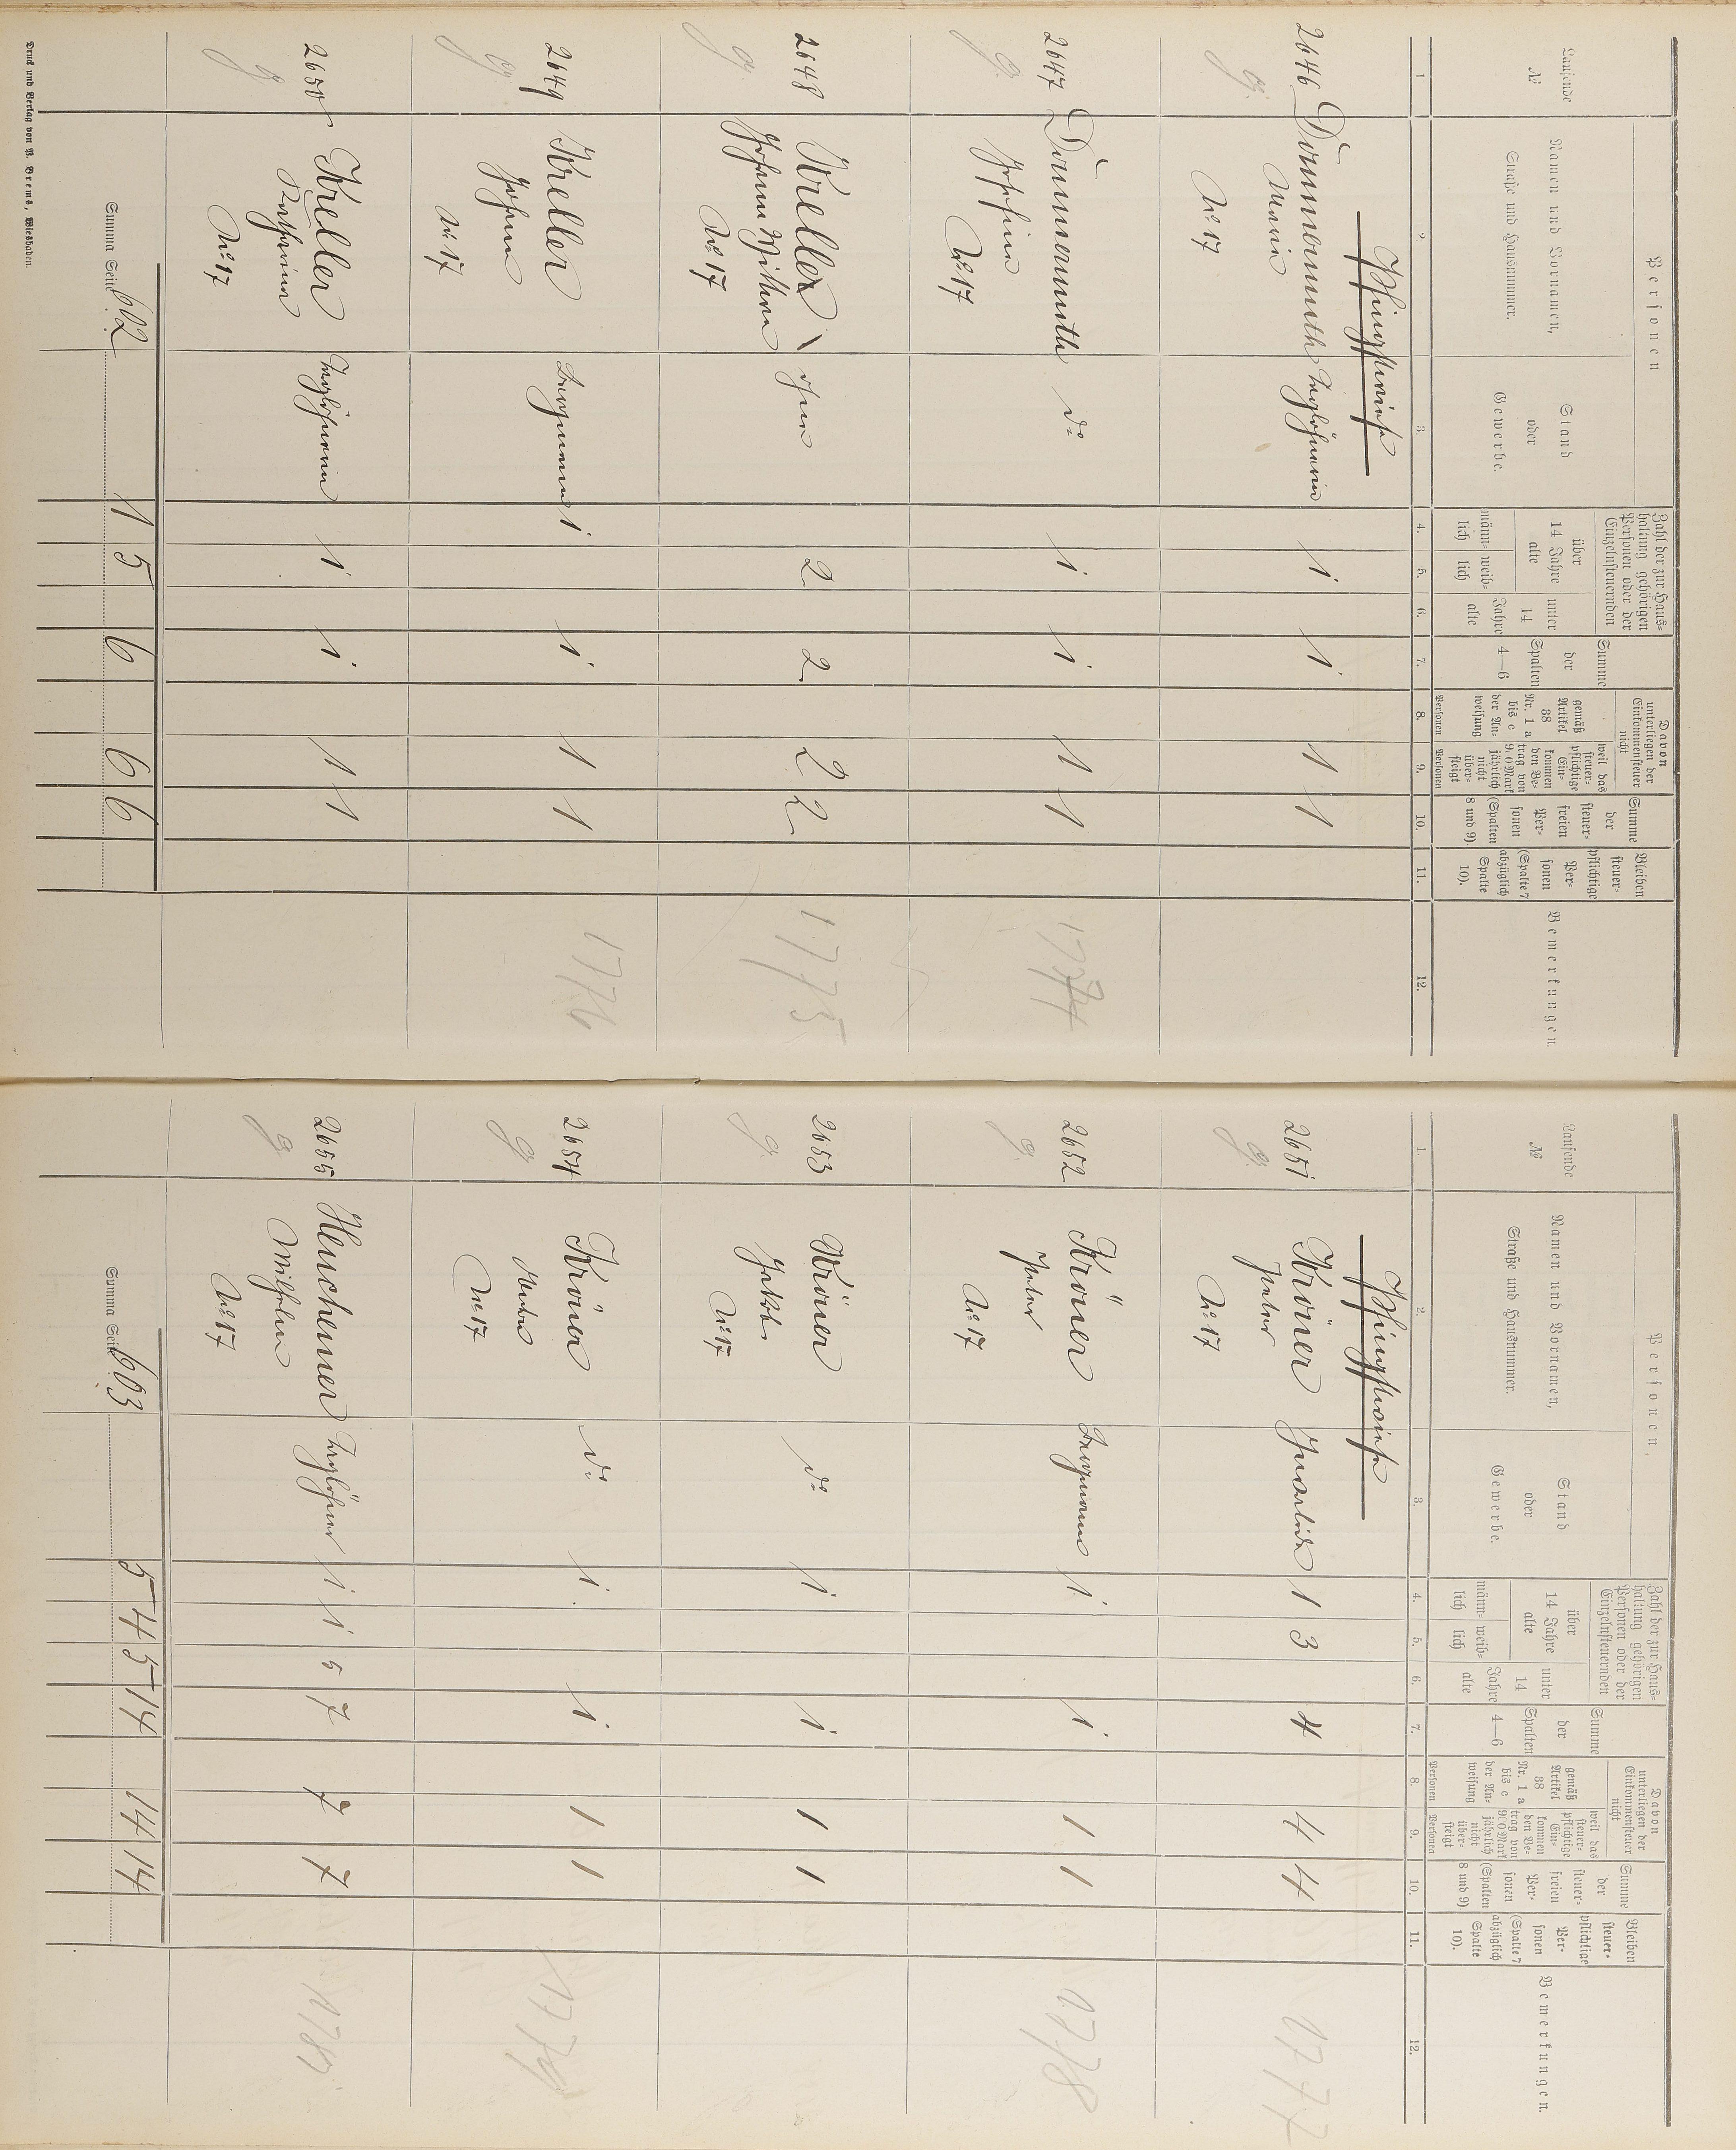 Personen
Laufende
№
Namen und Vornamen,
Straße und Hausnummer.
Stand
oder
Gewerbe.
Zahl der zur Haus-
haltung gehörigen
Personen oder der
Einzelnsteuernden
über
14 Jahre
alte
männ-
lich
weib-
lich
unter
14
Jahre
alte
Summe
der
Spalten
4—6
Davon
unterliegen der
Einkommensteuer
nicht
gemäß
Artikel
38
Nr. 1 a
bis c
der An-
weisung
Personen
weil das
steuer-
pflichtige
Ein-
kommen
den Be-
trag von
900 Mark
jährlich
nicht
über-
steigt
Personen
Summe
der
steuer-
freien
Per-
sonen
(Spalten
8 und 9).
Bleiben
steuer-
pflichtige
Per-
sonen
(Spalte 7
abzüglich
Spalte
10).
Bemerkungen.
1 2. 3. 4. 5. 6. 7. 8. 9. 10. 11. 12.
Pfingstwiese
2646 Dannemuth Taglöhnerin 1 1 1 1
No 17
2647 Dannemuth do 1 1 1 1 1774
Josefine
No 17
2648 Kreller ohne 2 2 2 2 1775
Johann Wilhelm
No 17
2649 Kreller Bergmann 1 1 1 1 1776
Johann
No 17
2650 Kreller Taglöhnerin 1 1 1 1
Katharina
No 17
Summa Seite 602 1 5 6 6 6
Druck und Verlag von P. Brems, Wiesbaden.
Personen,
Laufende
№
Namen und Vornamen,
Straße und Hausnummer.
Stand
oder
Gewerbe.
Zahl der zur Haus-
haltung gehörigen
Personen oder der
Einzelnsteuernden
über
14 Jahre
alte
männ-
lich
weib-
lich
unter
14
Jahre
alte
Summe
der
Spalten
4—6
Davon
unterliegen der
Einkommensteuer
nicht
gemäß
Artikel
38
Nr. 1 a
bis c
der An-
weisung
Personen
weil das
steuer-
pflichtige
Ein-
kommen
den Be-
trag von
900 Mark
jährlich
nicht
über-
steigt
Personen
Summe
der
steuer-
freien
Per-
sonen
(Spalten
8 und 9).
Bleiben
steuer-
pflichtige
Per-
sonen
(Spalte 7
abzüglich
Spalte
10).
Bemerkungen.
1. 2. 3. 4. 5. 6. 7. 8. 9. 10. 11. 12.
Pfingstwiese
2651 Kröner Invalide 1 3 4 4 4 1777
Peter
No 17
2652 Kröner Bergmann 1 1 1 1 1778
Peter
No 17
2653 Kröner do 1 1 1 1
Jakob
No 17
2654 Kröner do 1 1 1 1 1779
No 17
2655 Heuchemer Taglöhner 1 1 5 7 7 7 1780
Wilhelm
No 17
Summa Seite 603 5 4 5 14 14 14